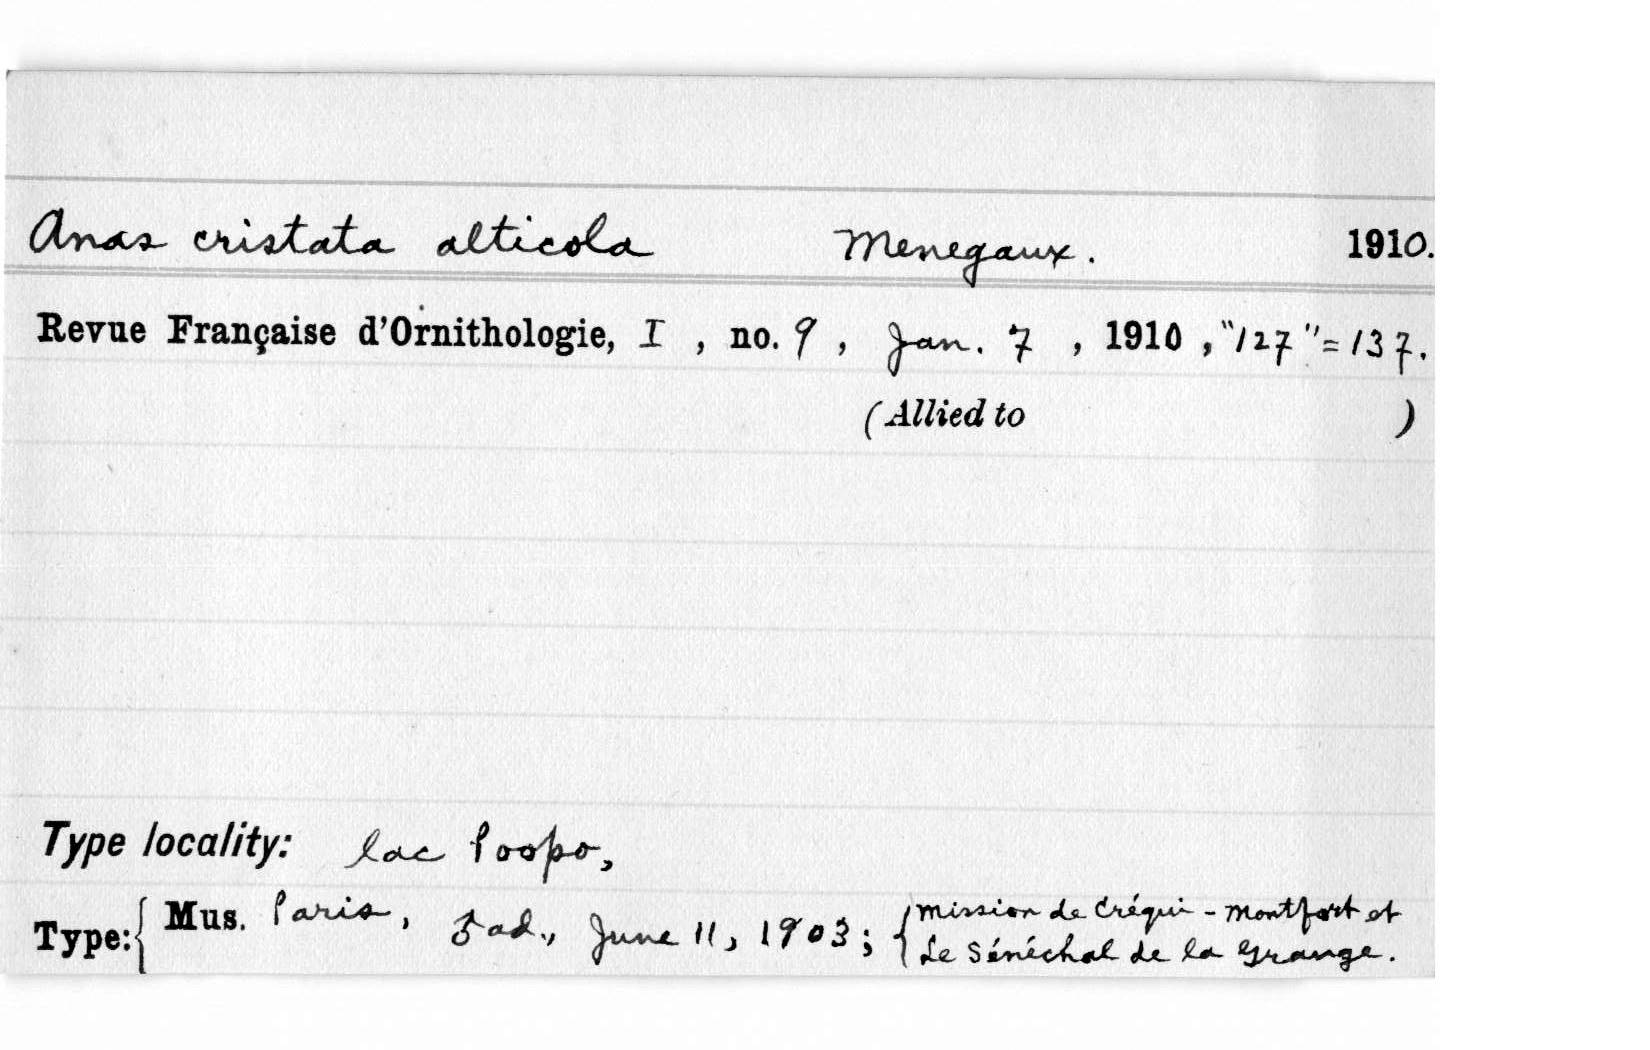 Anas cristata alticola Menegaux. 1910.
Revue Française d'Ornithologie, I, no. 9, Jan. 7, 1910, "127" = 137.
(Allied to )
Type locality: Lac Poopo,
Type: { Mus. Paris, ad., June 11, 1903; { Mission de Créqui-Montfort et
Le Sénéchal de la Grange.